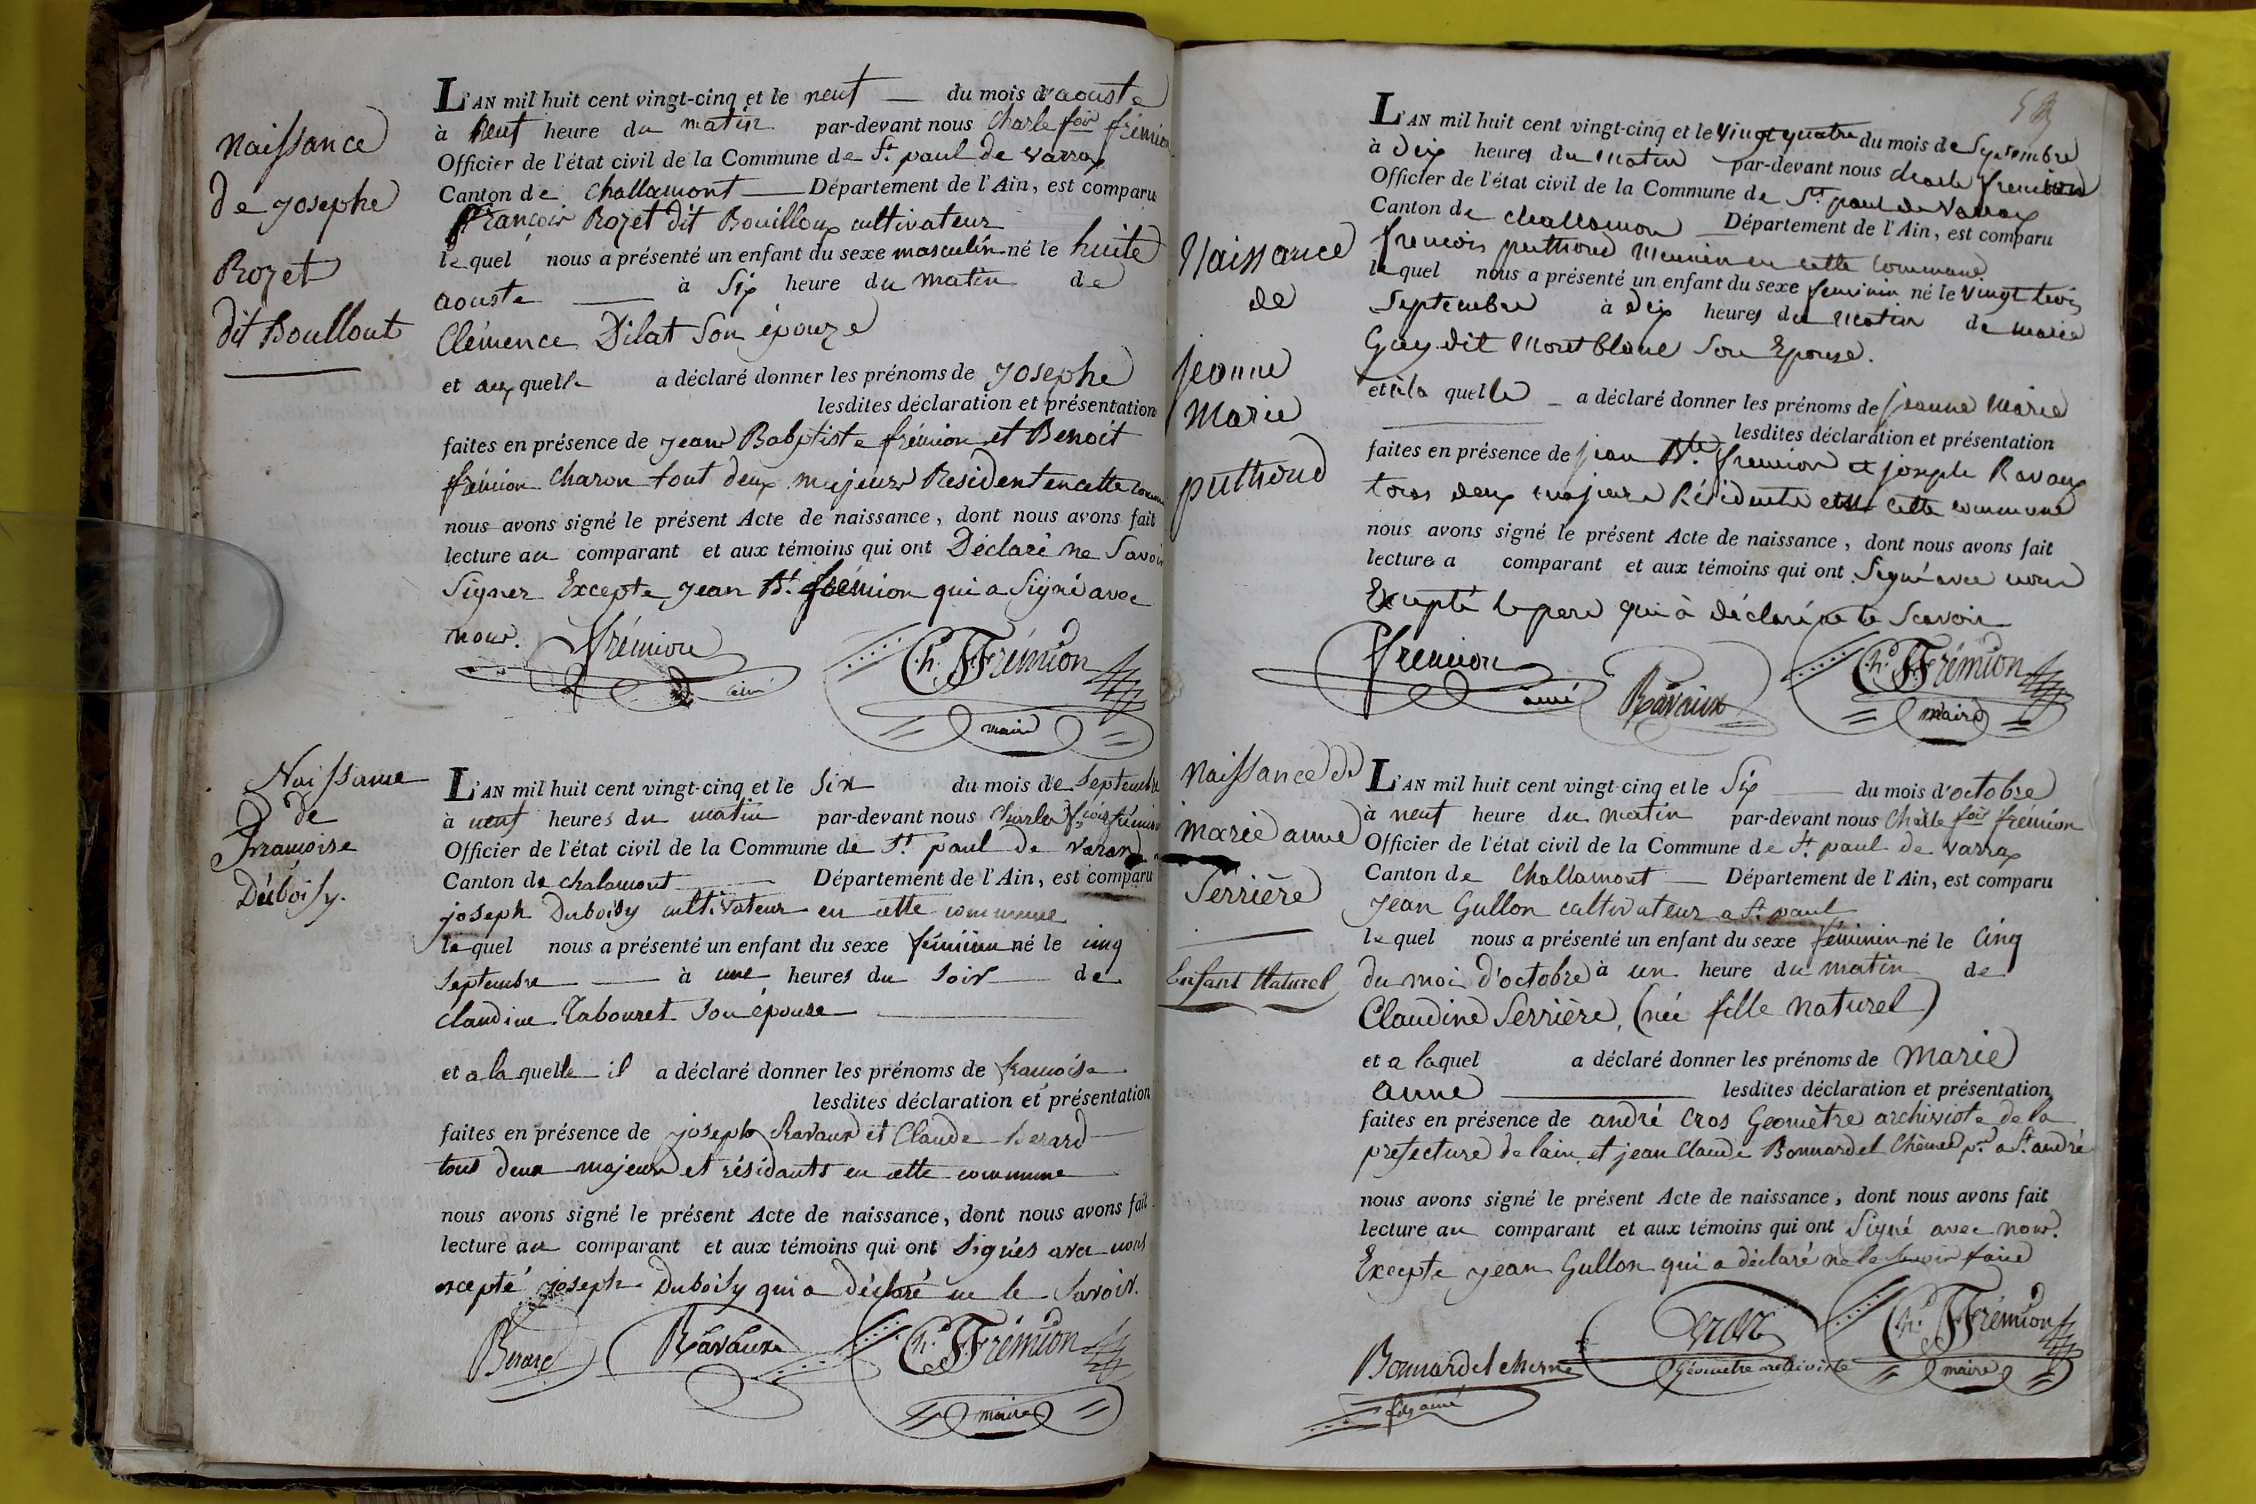 Naissance
de Josephe
Rozet
dit Boullout
L'AN mil huit cent vingt-cinq et le neuf — du mois d'aouste
à neuf heure du matin par-devant nous Charle fois frémion
Officier de l'état civil de la Commune de St. paul de varax
Canton de challamont — Département de l'Ain, est comparu
françois Rozet dit Bouilloux cultivateur
lequel nous a présenté un enfant du sexe masculin né le huite
aouste — à Six heure du matin de
Clémence Dilat Son épouze
et auxquelle a déclaré donner les prénoms de Josephe
lesdites déclaration et présentation
faites en présence de Jean Babptiste frémion et Benoit
frémion charon tout deux majeure Resident en cette
nous avons signé le présent Acte de naissance, dont nous avons fait
lecture au comparant et aux témoins qui ont Déclaré ne Savoir
Signer Excepte Jean Bt. frémion qui a Signé avec
nous.
frémion
ainé
Ch. F. Frémion
maire
Naissance
de
Françoise
Duboisy.
L'AN mil huit cent vingt-cinq et le six du mois de Septembre
à neuf heures du matin par-devant nous Charles fçois frémion
Officier de l'état civil de la Commune de St. paul de varax
Canton de chalamont — Département de l'Ain, est comparu
joseph Duboisy cultivateur en cette commune
lequel nous a présenté un enfant du sexe féminin né le cinq
Septembre — à une heures du Soir — de
Claudine Tabouret Son épouse —
et a la quelle il a déclaré donner les prénoms de françoise
lesdites déclaration et présentation
faites en présence de joseph Ravaux et Claude Berard
tous deux majeurs et résidants en cette commune
nous avons signé le présent Acte de naissance, dont nous avons fait
lecture au comparant et aux témoins qui ont signés avec nous
excepté joseph Duboisy qui a déclaré ne le Savoir.
Berard
Ravaux
Ch. F. Frémion
maire
Naissance
de
jeanne
Marie
puthoud
L'AN mil huit cent vingt-cinq et le vingt quatre du mois de Septembre
à dix heures du matin par-devant nous charle fremion
Officier de l'état civil de la Commune de St. paul de Varax
Canton de challamon — Département de l'Ain, est comparu
francois puthoud Meunier en cette commune
lequel nous a présenté un enfant du sexe feminin né le vingt trois
Septembre à dix heures du matin de marie
Guy dit Montblanc Son Epouse.
et à la quelle — a déclaré donner les prénoms de jeanne Marie
lesdites déclaration et présentation
faites en présence de jean Bte. fremion et joseph Ravaux
tous deux majeure Résidents en cette commune
nous avons signé le présent Acte de naissance, dont nous avons fait
lecture a comparant et aux témoins qui ont Signé avec nous
Excepté le pere qui à déclaré ne le Scavoir
fremion
ainé
Ravaux
Ch. F. Frémion
maire
Naissance de
marie anne
Serrière
Enfant Naturel
L'AN mil huit cent vingt-cinq et le Six — du mois d'octobre
à neuf heure du matin par-devant nous Charle fois frémion
Officier de l'état civil de la Commune de St. paul de varax
Canton de Challamont — Département de l'Ain, est comparu
Jean Gullon caltivateur a St. paul
lequel nous a présenté un enfant du sexe féminin né le Cinq
du moi d'octobre à un heure du matin de
Claudine Serrière, (née fille naturel)
et a laquel a déclaré donner les prénoms de Marie
anne — lesdites déclaration et présentation
faites en présence de andré Cros Geomètre archiviste de la
prefecture de lain, et jean Claude Bonnardel Chêmed pre. a St. andré
nous avons signé le présent Acte de naissance, dont nous avons fait
lecture au comparant et aux témoins qui ont Signé avec nous.
Excepte Jean Gullon qui a déclaré ne le Savoir faire
Bonnardel
fils ainé
Cros
Géometre archiviste
Ch. F. Frémion
maire